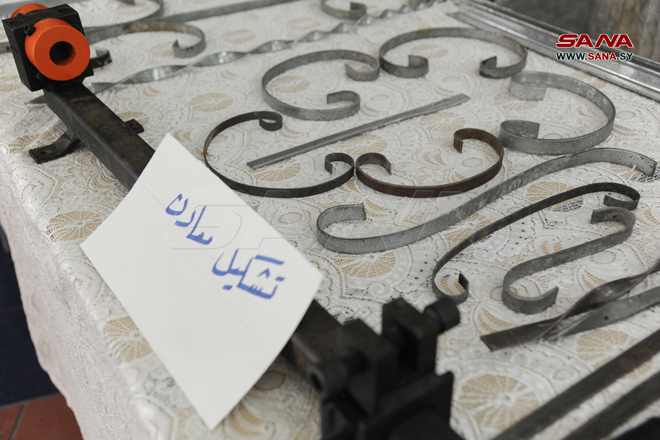 SANA
WWW.SANA.SY
تشكيل سارده